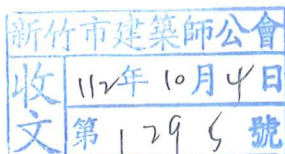 新竹市建築師公會
收文
112年10月4日
第1295號